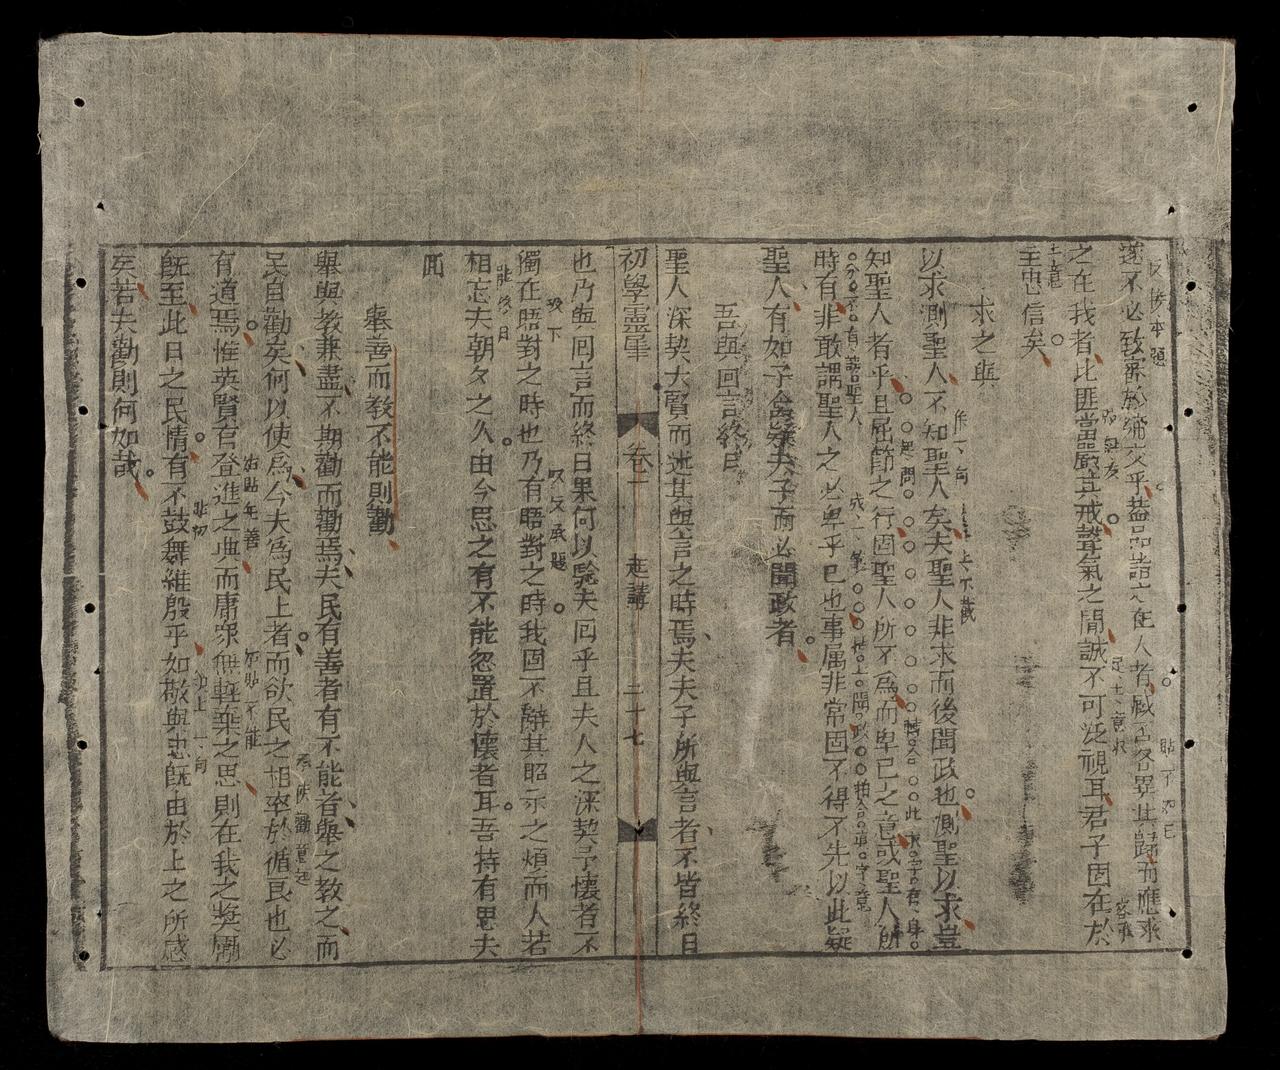 遂不必致審於締交乎蓋品詣之在人者感召各異其歸而應求
之在我者比匪當嚴其戒聲氣之間誠不可泛視耳君子固在於
主忠信矣
求之與
以求測聖人不知聖人矣夫聖人非求而後聞政也測聖以求豈
知聖人者乎且屈節之行固聖人所不為而卑已之意或聖人所
時有非敢謂聖人之必卑乎已也事属非常固不得不先以此疑
聖人有如子禽疑夫子而必聞政者
吾與回言終日
聖人深契大賢而述其與言之時焉夫夫子所與言者不皆終日
初學靈犀 卷一 起講 二十七
也乃與囘言而終日果何以騐夫囘乎且夫人之深契予懷者不
獨在晤對之時也乃有晤對之時我固不辭其昭示之煩而人若
相忘夫朝夕之久由今思之有不能忽置於懷者耳吾特有思夫
囬
舉善而敎不能則勸
舉與敎兼盡不期勸而勸焉夫民有善者有不能者舉之敎之而
民自勸矣何以使為今夫為民上者而欲民之相率於循良也必
有道焉惟英賢有登進之典而庸眾無輕棄之思則在我之奬勵
旣至此日之民情有不鼓舞維殷乎如敬與忠旣由於上之所感
矣若夫勸則何如哉